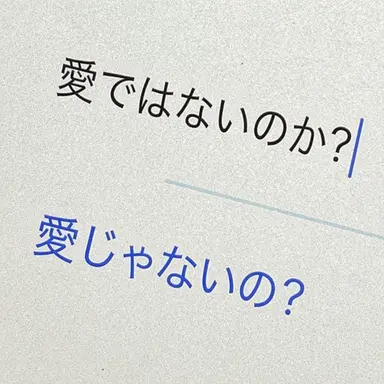 愛ではないのか?
愛じゃないの?